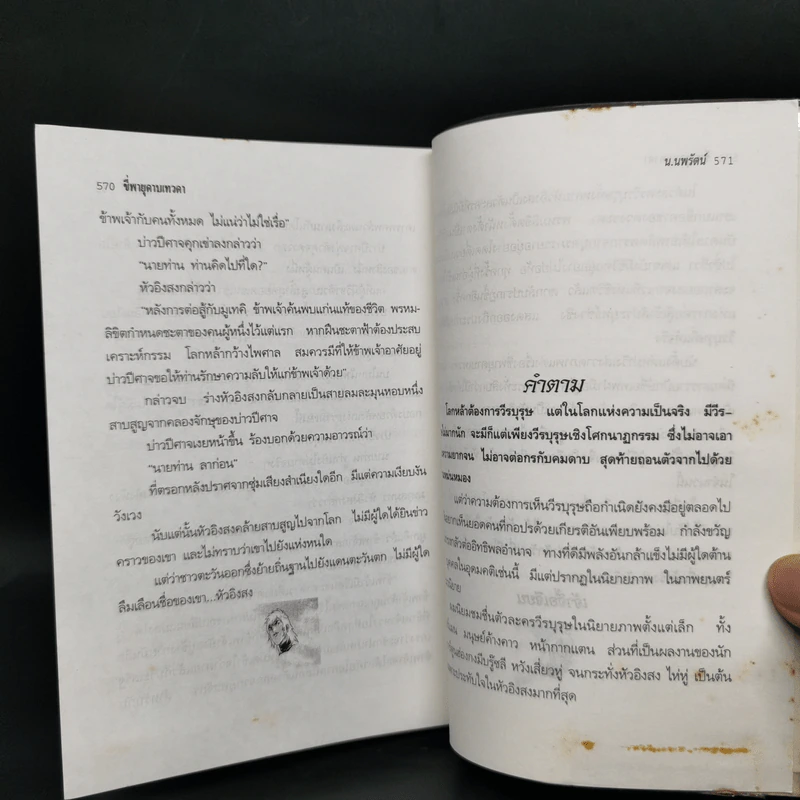 570 ขี่พายุดาบเทวดา
ข้าพเจ้ากับคนทั้งหมด ไม่แน่ว่าไม่ใช่เรื่อ"
บ่าวปีศาจคุกเข่าลงกล่าวว่า
"นายท่าน ท่านคิดไปที่ใด?"
หัวอิงสงกล่าวว่า
"หลังการต่อสู้กับมูเทคิ ข้าพเจ้าค้นพบแก่นแท้ของชีวิต พรหม-
ลิขิตกำหนดชะตาของคนผู้หนึ่งไว้แต่แรก หากฝืนชะตาฟ้าต้องประสบ
เคราะห์กรรม โลกหล้ากว้างไพศาล สมควรมีที่ให้ข้าพเจ้าอาศัยอยู่
บ่าวปีศาจขอให้ท่านรักษาความลับให้แก่ข้าพเจ้าด้วย"
กล่าวจบ ร่างหัวอิงสงกลับกลายเป็นสายลมละมุนทอบหนึ่ง
สาบสูญจากคลองจักษุของบ่าวปีศาจ
บ่าวปีศาจเงยหน้าขึ้น ร้องบอกด้วยความอาวรณ์ว่า
"นายท่าน ลาก่อน"
ที่ตรอกหลังปราศจากซุ่มเสียงสำเนียงใดอีก มีแต่ความเงียบงัน
วังเวง
นับแต่นั้นหัวอิงสงคล้ายสาบสูญไปจากโลก ไม่มีผู้ใดได้ยินข่าว
คราวของเขา และไม่ทราบว่าเขาไปยังแห่งหนใด
แต่ว่าชาวตะวันออกซึ่งย้ายถิ่นฐานไปยังแดนตะวันตก ไม่มีผู้ใด
ลืมเลือนชื่อของเขา...หัวอิงสง
น.นพรัตน์ 571
คำตาม
โลกหล้าต้องการวีรบุรุษ แต่ในโลกแห่งความเป็นจริง มีวีร-
ไม่มากนัก จะมีก็แต่เพียงวีรบุรุษเชิงโศกนาฏกรรม ซึ่งไม่อาจเอา
ความยากจน ไม่อาจต่อกรกับคมดาบ สุดท้ายถอนตัวจากไปด้วย
หม่นหมอง
แต่ว่าความต้องการเห็นวีรบุรุษถือกำเนิดยังคงมีอยู่ตลอดไป
อยากเห็นยอดคนที่กอปรด้วยเกียรติอันเพียบพร้อม กำลังขวัญ
เกรงกลัวต่ออิทธิพลอำนาจ ทางที่ดีมีพลังอันกล้าแข็งไม่มีผู้ใดต้าน
บุคคลในอุดมคติเช่นนี้ มีแต่ปรากฏในนิยายภาพ ในภาพยนตร์
นิยาย
ผมนิยมชมชื่นตัวละครวีรบุรุษในนิยายภาพตั้งแต่เล็ก ทั้ง
มนุษย์ค้างคาว หน้ากากแตน ส่วนที่เป็นผลงานของนัก
ฮ่องกงมีบรู๊ซลี หวังเสี่ยวหู่ จนกระทั่งหัวอิงสง ไท่หู่ เป็นต้น
ประทับใจในหัวอิงสงมากที่สุด